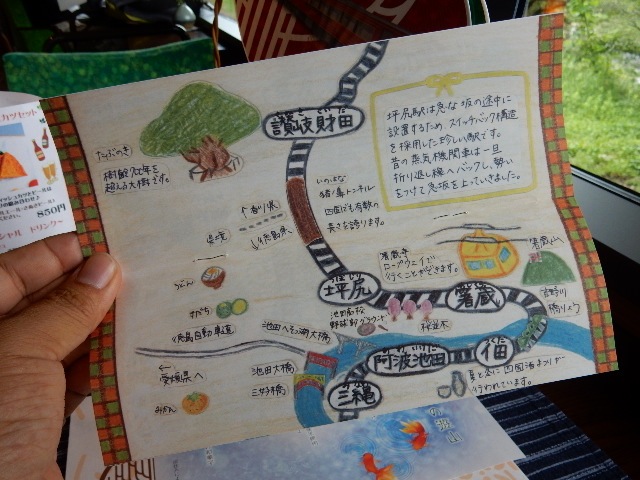 讃岐財田
坪尻駅は急な坂の途中に
設置するため、スイッチバック構造
を採用した珍しい駅です。
昔の蒸気機関車は一旦
折り返し線へバックし、勢い
をつけて急坂を上っていきました。
たぶのき
樹齢700年を
超える大樹です。
いのはな
猪ノ鼻トンネル
四国でも有数の
長さを誇ります。
↑香川県
県境
↓徳島県
うどん
すだち
坪尻
箸蔵寺
ロープウェイで
行くことができます。
箸蔵山
箸蔵
吉野川
橋りょう
池田高校
野球部グラウンド
桜並木
徳島自動車道
池田へそっ湖大橋
阿波池田
佃
←
愛媛県へ
みかん
池田大橋
三好橋
三縄
行われています。
850円